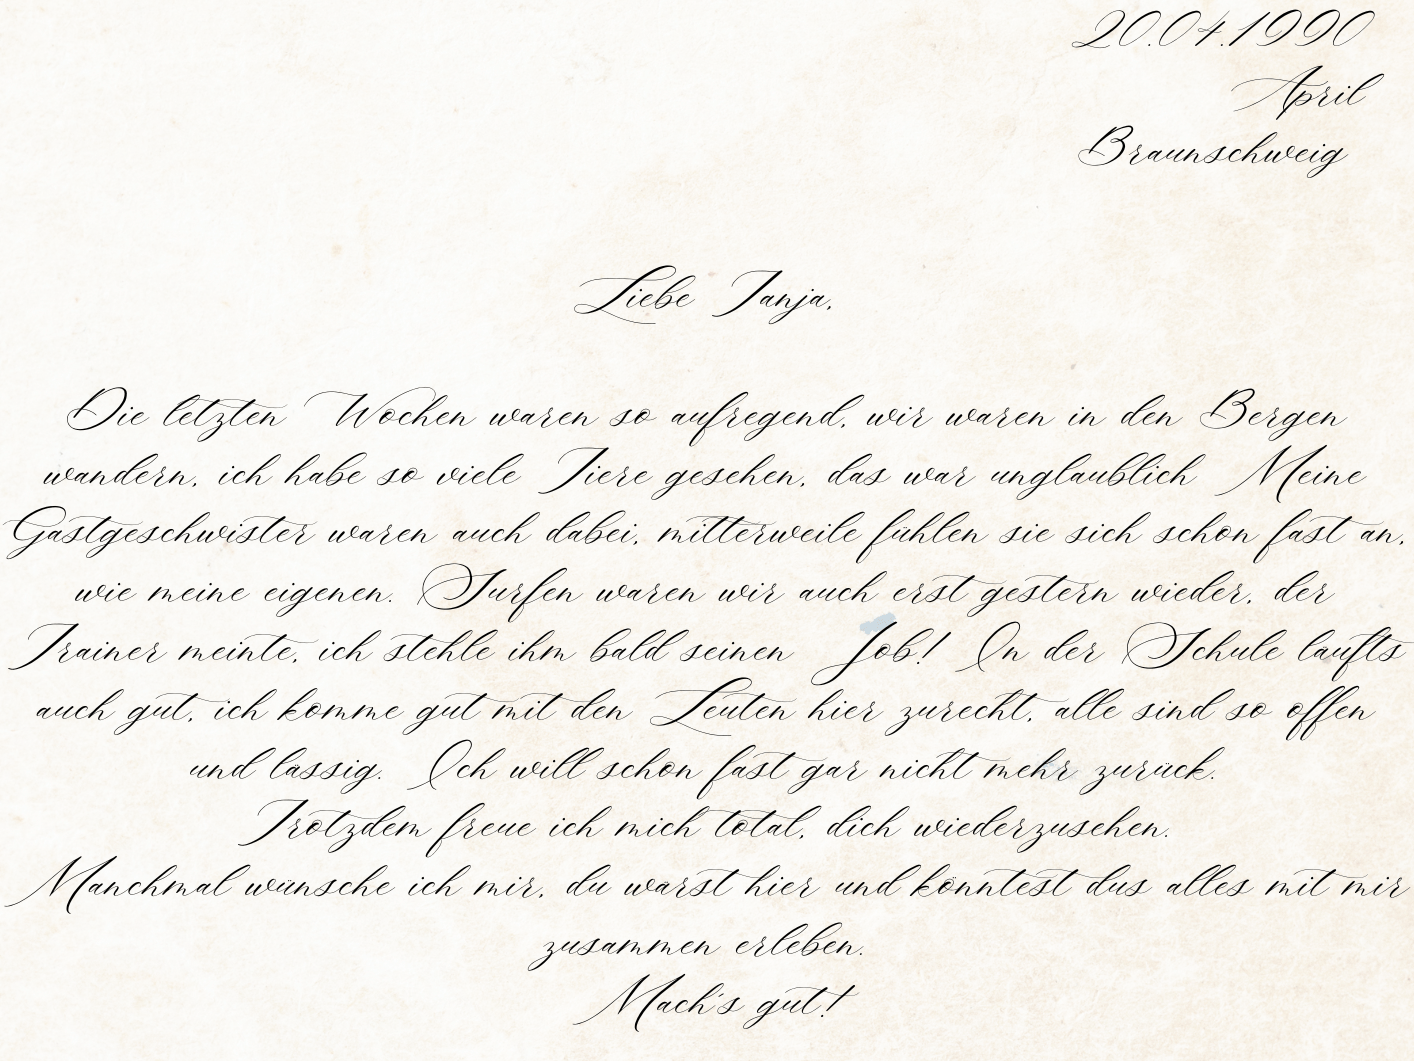 20.04.1990
April
Braunschweig
Liebe Tanja,
Die letzten Wochen waren so aufregend, wir waren in den Bergen
wandern, ich habe so viele Tiere gesehen, das war unglaublich Meine
Gastgeschwister waren auch dabei, mitterweile fühlen sie sich schon fast an,
wie meine eigenen. Surfen waren wir auch erst gestern wieder, der
Trainer meinte, ich stehle ihm bald seinen Job! In der Schule läufts
auch gut, ich komme gut mit den Leuten hier zurecht, alle sind so offen
und lässig. Ich will schon fast gar nicht mehr zurück.
Trotzdem freue ich mich total, dich wiederzusehen.
Manchmal wünsche ich mir, du wärst hier und könntest dus alles mit mir
zusammen erleben.
Mach's gut!